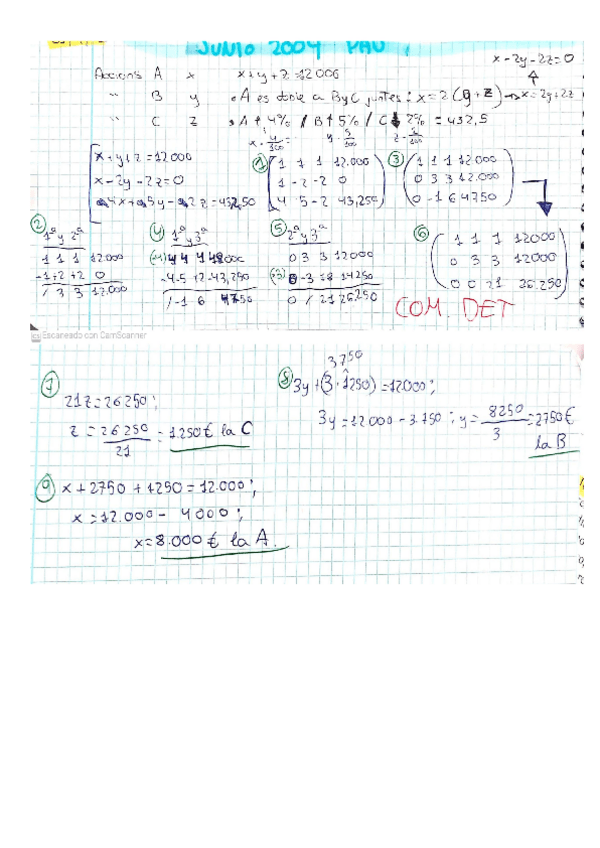 JUNIO 2004 PAU
x-2y-2z=0
Accions A x x+y+z=12000
" B y • A es doble a B y C juntes: x=2(y+z) → x=2y+2z
" C z • A↑4% / B↑5% / C↓2% = 432,5
x·4/100 = y·5/100 z·2/100
x+y+z=12000
x-2y-2z=0
① 1 1 1 12.000
1 -2 -2 0
4 5 -2 43,250
③ 1 1 1 12.000
0 3 3 12.000
0 -1 6 4750
② 1ª y 2ª
1 1 1 12.000
-1+2+2 0
/ 3 3 12.000
④ 1ª y 3ª
-4-5+2-43,250
/-1 6 4750
⑤ 2ª y 3ª
0 3 3 12000
(·3) 0 -3 18 14250
0 / 21 26.250
⑥ 1 1 1 12000
0 3 3 12000
0 0 21 26.250
COM. DET
Escaneado con CamScanner
⑦ 21z=26250;
z = 26250/21 = 1250€ la C
3750
⑧ 3y+(3·1250)=12000;
3y=12000-3.750; y= 8250/3 =2750€
la B
⑨ x+2750+1250=12.000;
x=12.000-4000;
x=8.000€ la A.